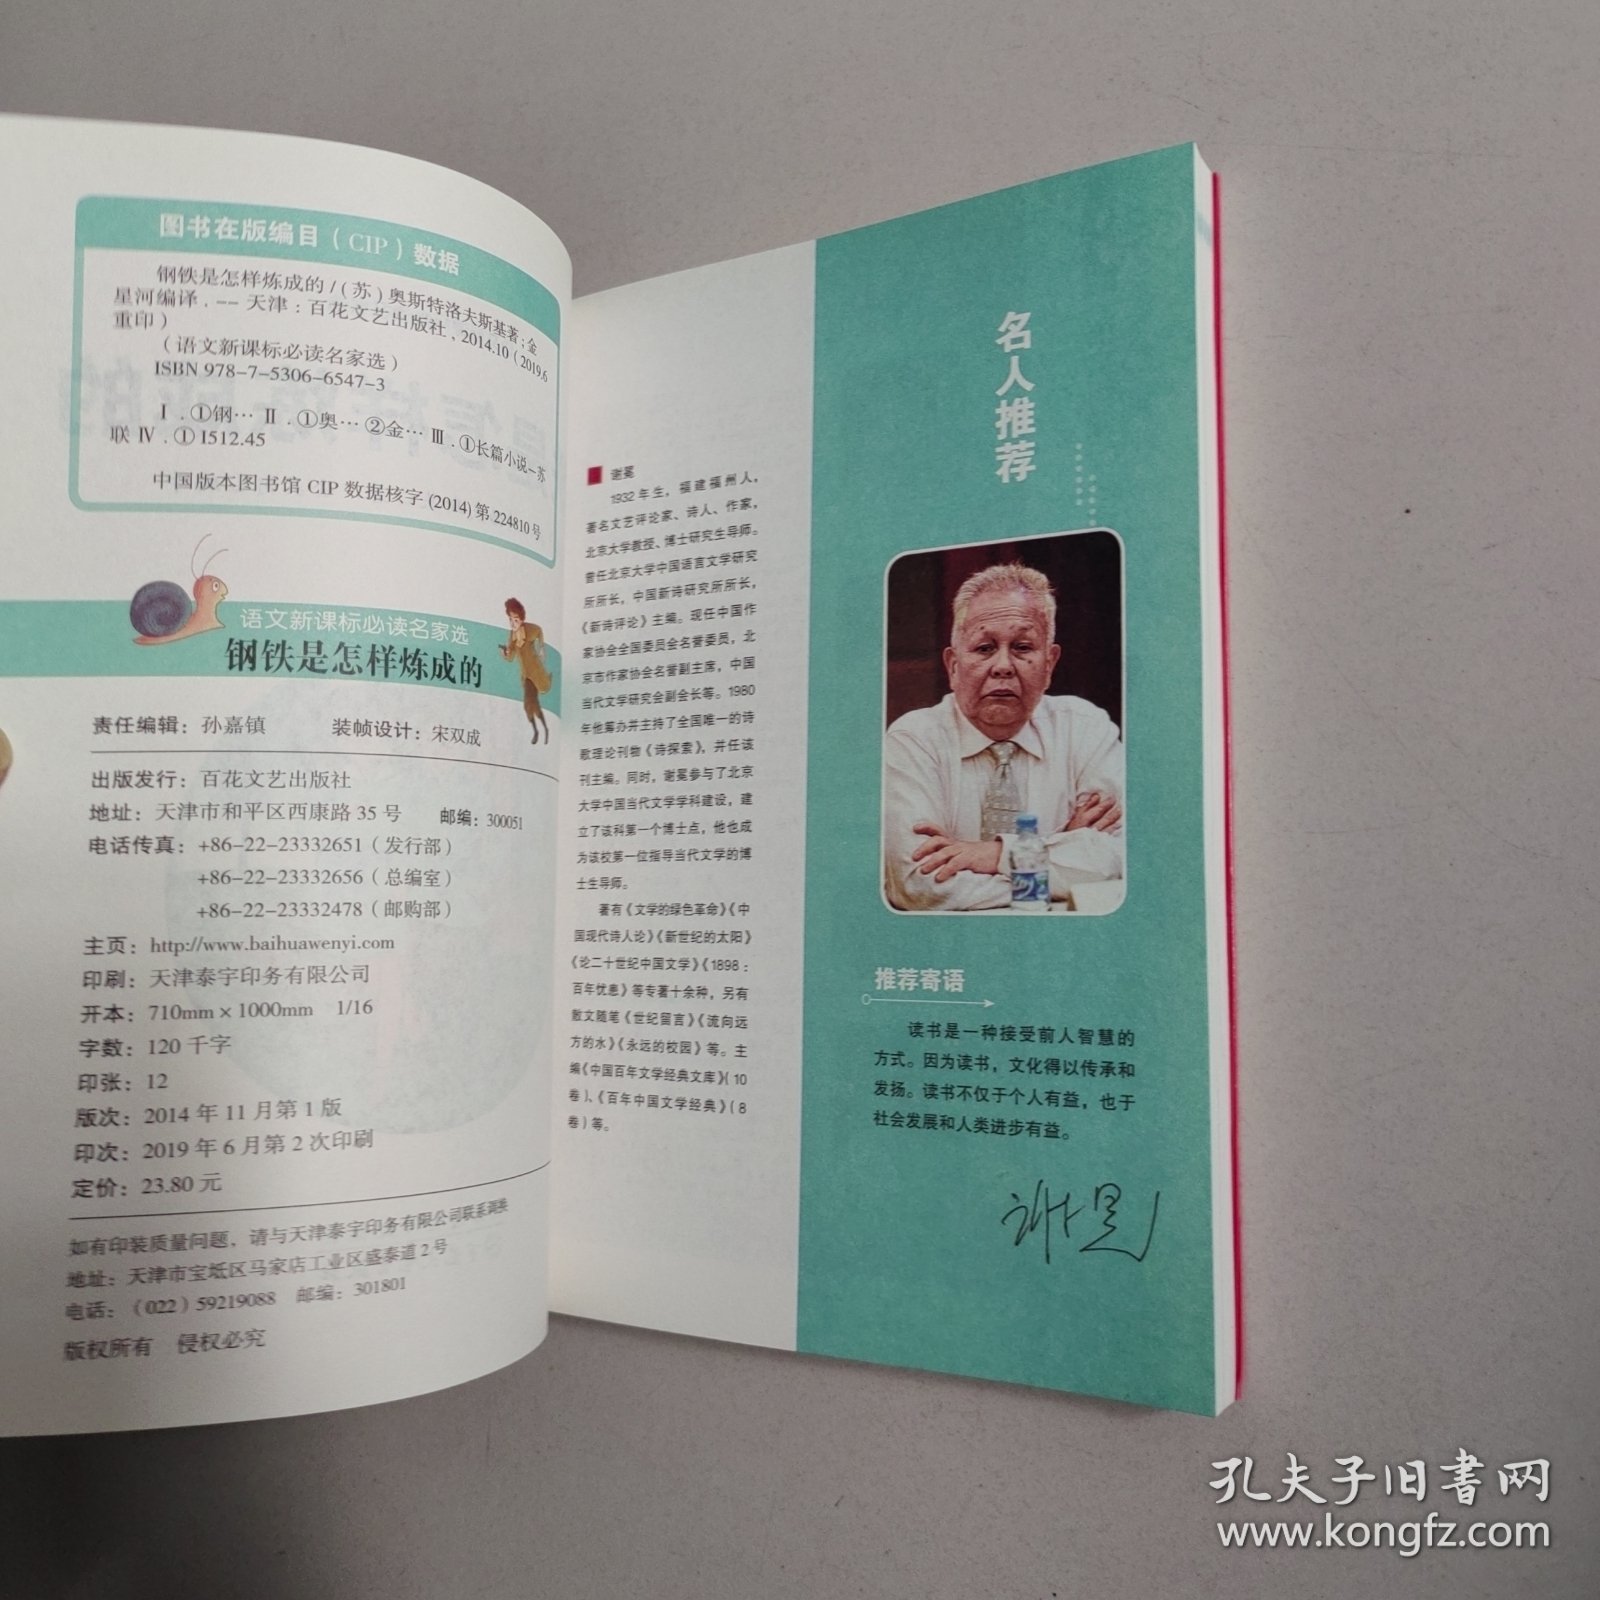 图书在版编目（CIP）数据
钢铁是怎样炼成的/（苏）奥斯特洛夫斯基著；金
星河编译．－－天津：百花文艺出版社，2014.10（2019.6
重印）
（语文新课标必读名家选）
ISBN 978-7-5306-6547-3
Ⅰ．①钢… Ⅱ．①奥… ②金… Ⅲ．①长篇小说－苏
联 Ⅳ．①I512.45
中国版本图书馆 CIP 数据核字 (2014) 第 224810 号
语文新课标必读名家选
钢铁是怎样炼成的
责任编辑：孙嘉镇 装帧设计：宋双成
出版发行：百花文艺出版社
地址：天津市和平区西康路 35 号 邮编：300051
电话传真：+86-22-23332651（发行部）
+86-22-23332656（总编室）
+86-22-23332478（邮购部）
主页：http://www.baihuawenyi.com
印刷：天津泰宇印务有限公司
开本：710mm×1000mm 1/16
字数：120 千字
印张：12
版次：2014 年 11 月第 1 版
印次：2019 年 6 月第 2 次印刷
定价：23.80 元
如有印装质量问题，请与天津泰宇印务有限公司联系调换
地址：天津市宝坻区马家店工业区盛泰道 2 号
电话：（022）59219088 邮编：301801
版权所有 侵权必究
谢冕
1932 年生，福建福州人，
著名文艺评论家、诗人、作家，
北京大学教授、博士研究生导师。
曾任北京大学中国语言文学研究
所所长，中国新诗研究所所长，
《新诗评论》主编。现任中国作
家协会全国委员会名誉委员，北
京市作家协会名誉副主席，中国
当代文学研究会副会长等。1980
年他筹办并主持了全国唯一的诗
歌理论刊物《诗探索》，并任该
刊主编。同时，谢冕参与了北京
大学中国当代文学学科建设，建
立了该科第一个博士点，他也成
为该校第一位指导当代文学的博
士生导师。
著有《文学的绿色革命》《中
国现代诗人论》《新世纪的太阳》
《论二十世纪中国文学》《1898：
百年忧患》等专著十余种，另有
散文随笔《世纪留言》《流向远
方的水》《永远的校园》等。主
编《中国百年文学经典文库》（10
卷）、《百年中国文学经典》（8
卷）等。
名人推荐
推荐寄语
读书是一种接受前人智慧的
方式。因为读书，文化得以传承和
发扬。读书不仅于个人有益，也于
社会发展和人类进步有益。
谢冕
孔夫子旧书网
www.kongfz.com